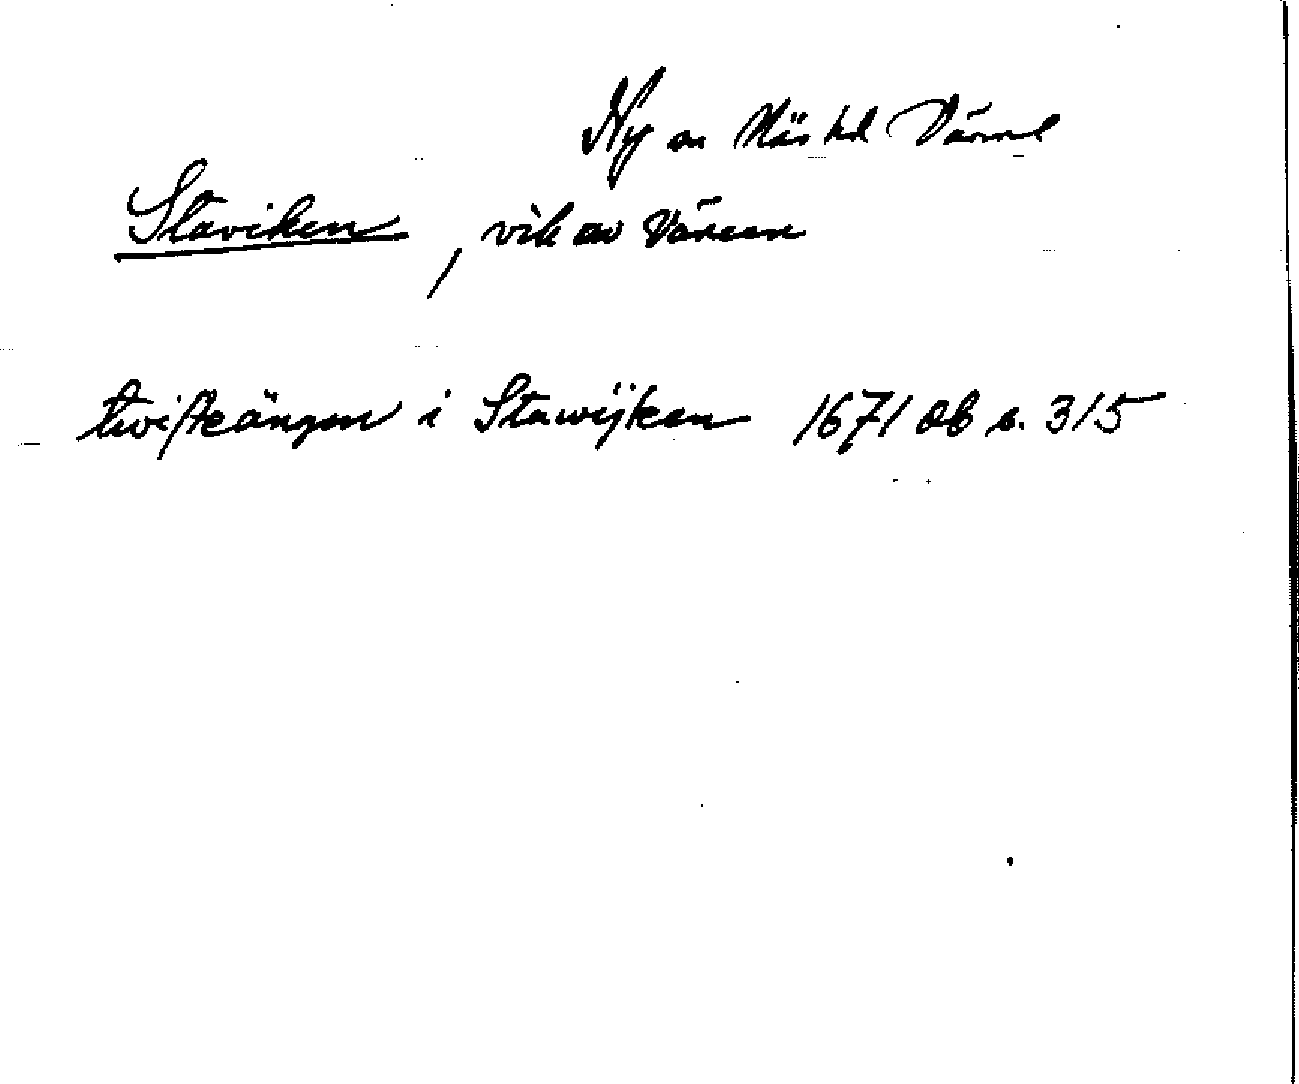 Ny sn Näs hd Värml
Staviken, vik av Vänern
twisteängen i Stawijken 1671 db s. 315